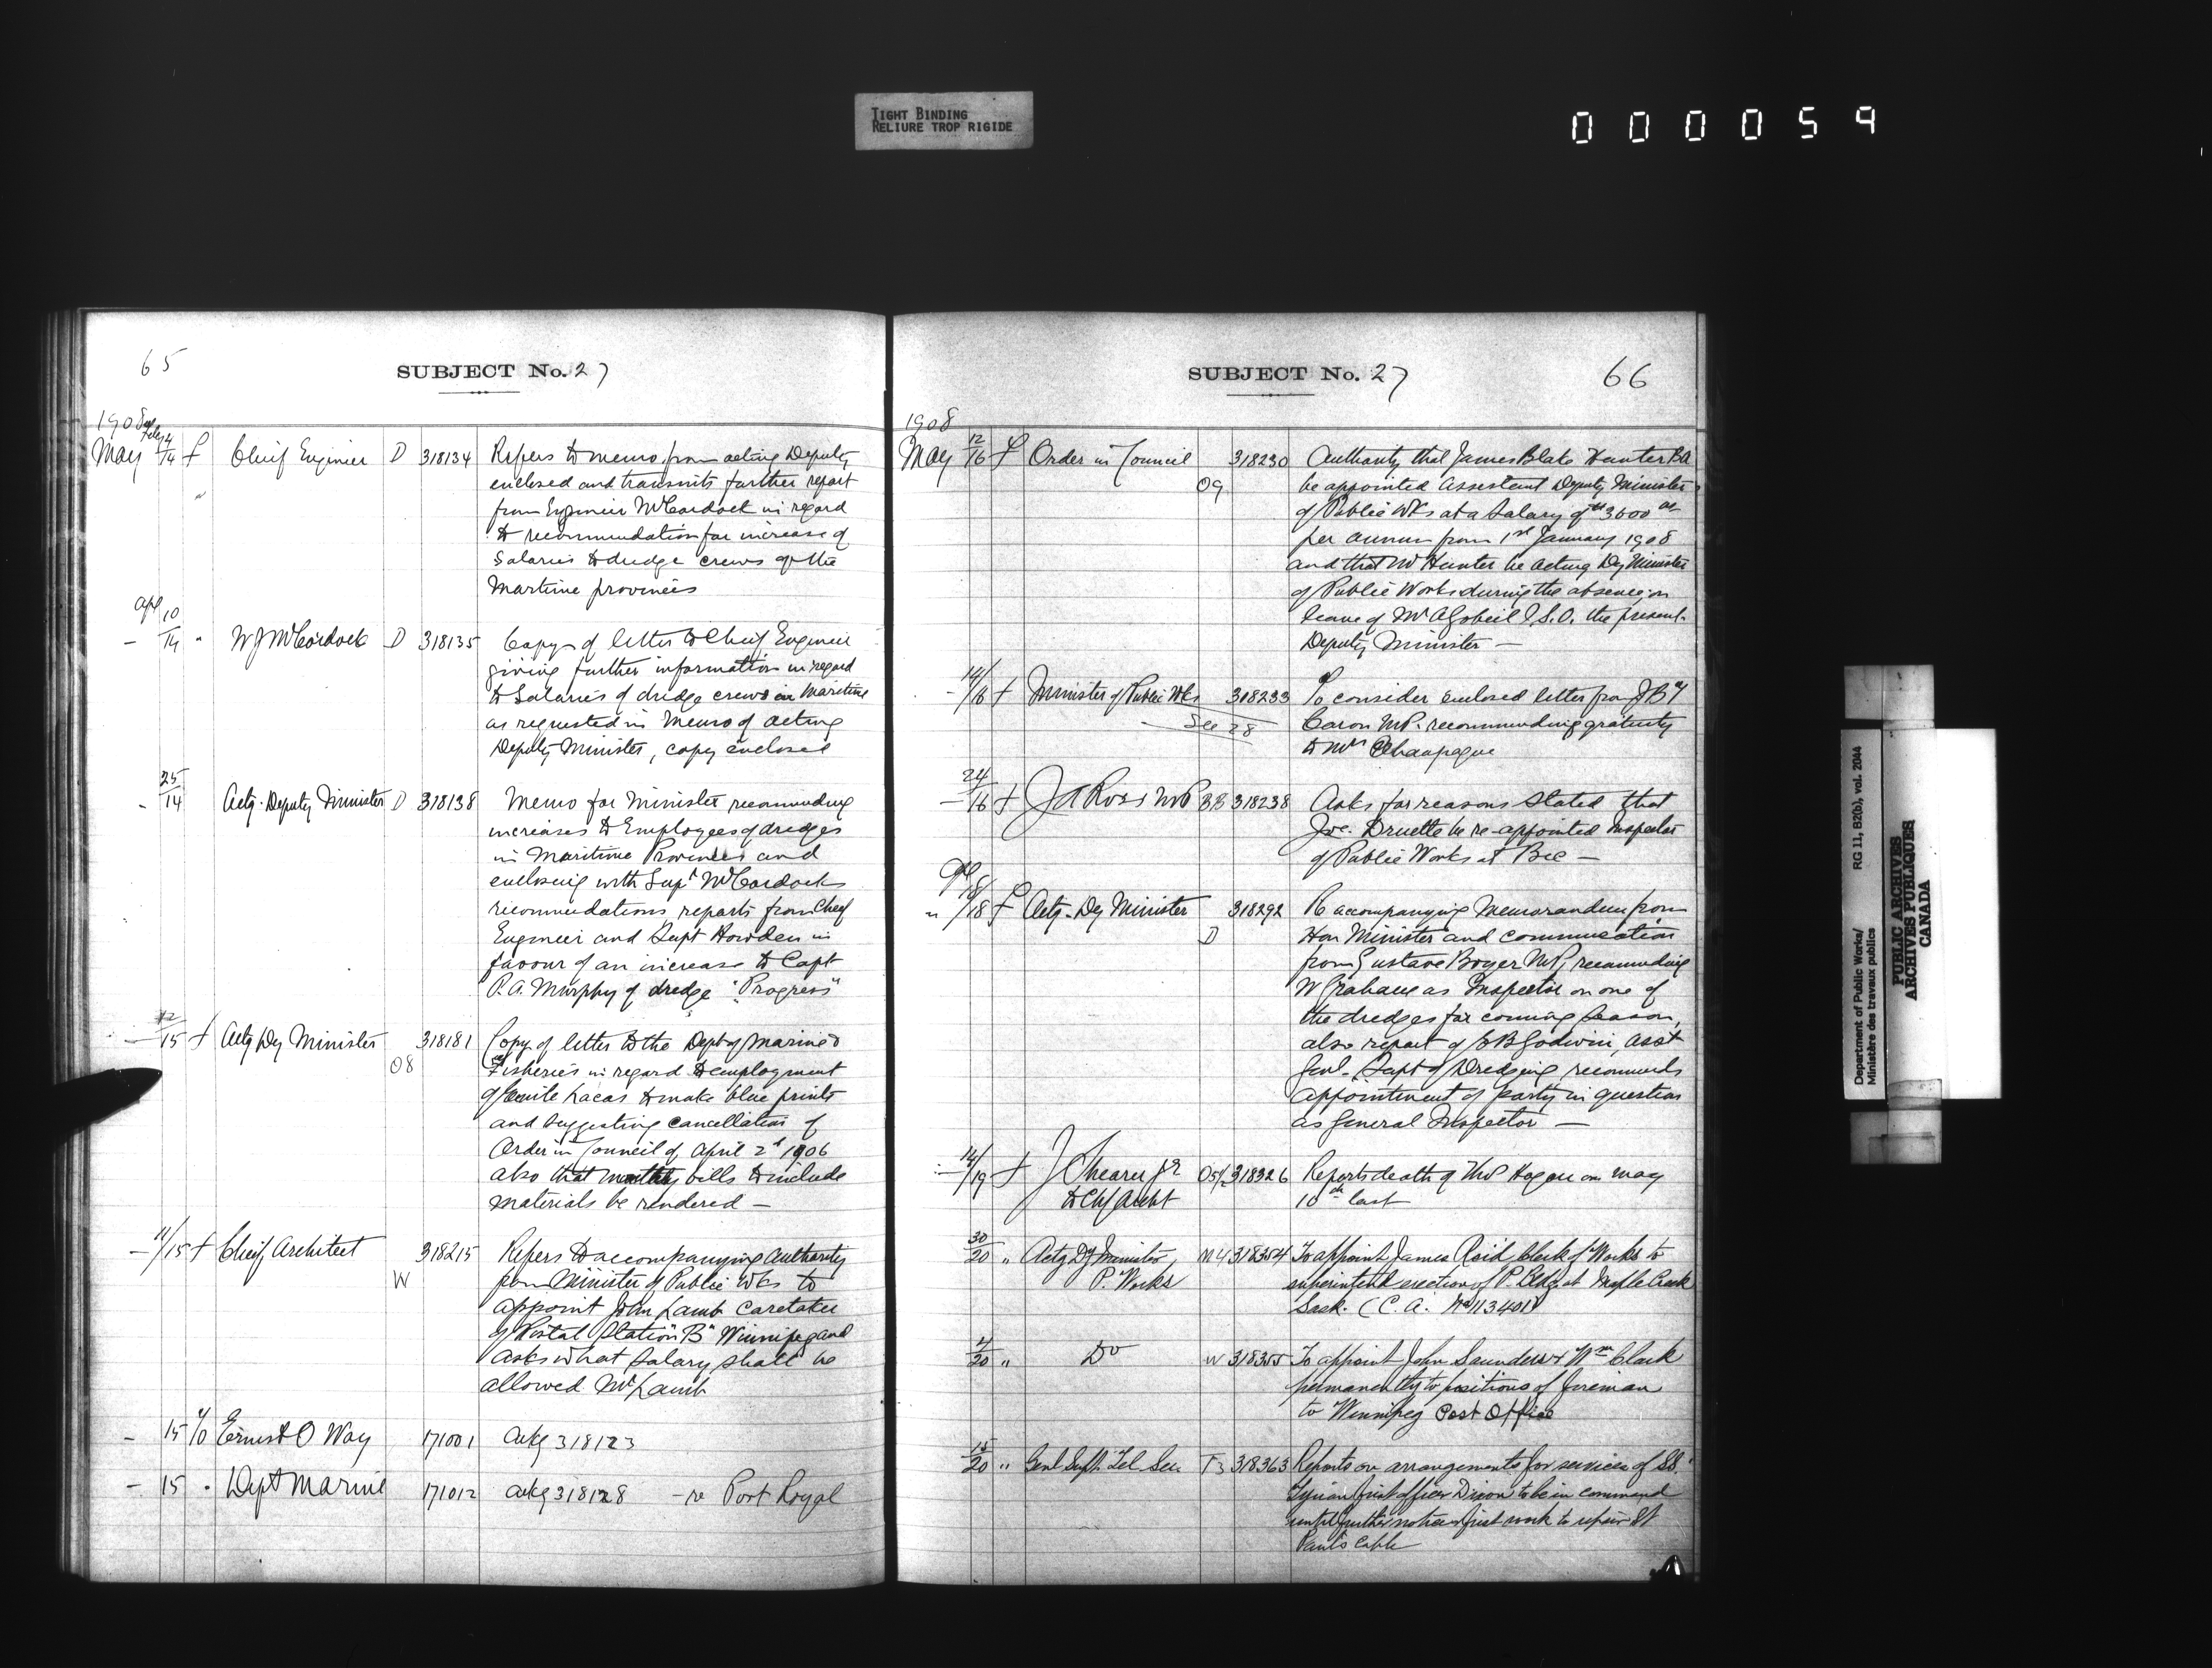 TIGHT BINDING
RELIURE TROP RIGIDE
000059
65
SUBJECT No. 27
1908
May 14 f Chief Engineer D 318134 Refers to memo from acting Deputy
enclosed and transmits further report
from Engineer McCordock in regard
to recommendation for increase of
Salaries to dredge crews of the
Maritime provinces
Apl 10
— 14 " W J McCordock D 318135 Copy of letter to Chief Engineer
giving further information in regard
to Salaries of dredge crews in Maritime
as requested in Memo of Acting
Deputy Minister, copy enclosed
25
- 14 Actg. Deputy Minister D 318138 Memo for Minister recommending
increases to Employees of dredges
in Maritime Provinces and
enclosing with Supt McCordock's
recommendations reports from Chief
Engineer and Supt Howden in
favour of an increase to Capt
P.A. Murphy of dredge "Progress"
12
— 15 f Actg Dy Minister 318181 Copy of letter to the Dept of Marine &
08 Fisheries in regard to employment
of Emile Lacas to make blue prints
and suggesting cancellation of
Order in Council of April 2d 1906
also that monthly bills to include
materials be rendered —
— 11/15 f Chief Architect 318215 Refers to accompanying authority
W from Minister of Public Wks to
appoint John Lamb Caretaker
of Postal Station "B" Winnipeg and
asks what salary shall be
allowed Mr Lamb
- 15 Ernest O Way 171001 ackg 318123
- 15 " Dept Marine 171012 ackg 318128 - re Port Royal
SUBJECT No. 27
66
1908
May 12/16 f Order in Council 318230 Authority that James Blake Hunter BA
09 be appointed Assistant Deputy Minister
of Public Wks at a Salary of $3600 00
per annum from 1st January 1908
and that Mr Hunter be acting Dy Minister
of Public Works during the absence on
leave of Mr A Gobeil I.S.O. the present
Deputy Minister —
- 14/16 f Minister of Public Wks 318233 To consider enclosed letter from
See 28 Caron M.P. recommending gratuity
to Mrs Champagne
24
- 16 f J A Ross MP BB 318238 Asks for reasons stated that
Jos. Druette be re-appointed Inspector
of Public Works at Bic —
" 18 f Actg. Dy Minister 318292 Re accompanying Memorandum from
D Hon Minister and communication
from Gustave Boyer M.P., recommending
W Graham as Inspector on one of
the dredges for coming season,
also report of J B Godwin, Asst
Genl. Supt of Dredging recommends
appointment of party in question
as General Inspector —
14/19 f J Shearer jr 318326 Reports death of Hogan on May
to Chf Archt 10th last
30
20 " Actg Dy Minister, M4 318354 To appoint James Reid Clerk of Works to
P. Works superintend erection of P. Bldg at Maple Creek
Sask. (C.A. No 113401)
4
20 " Do W 318355 To appoint John Saunders & Wm Clark
permanently to positions of foreman
to Winnipeg Post Office
15
20 " Genl Supt. Tel Ser. T3 318363 Reports on arrangements for services of SS.
Tyrian first officer Dixon to be in command
until further notice & first work to repair St
Paul's Cable
Department of Public Works/ RG 11, B2(b), vol. 2044
Ministère des travaux publics
PUBLIC ARCHIVES
ARCHIVES PUBLIQUES
CANADA